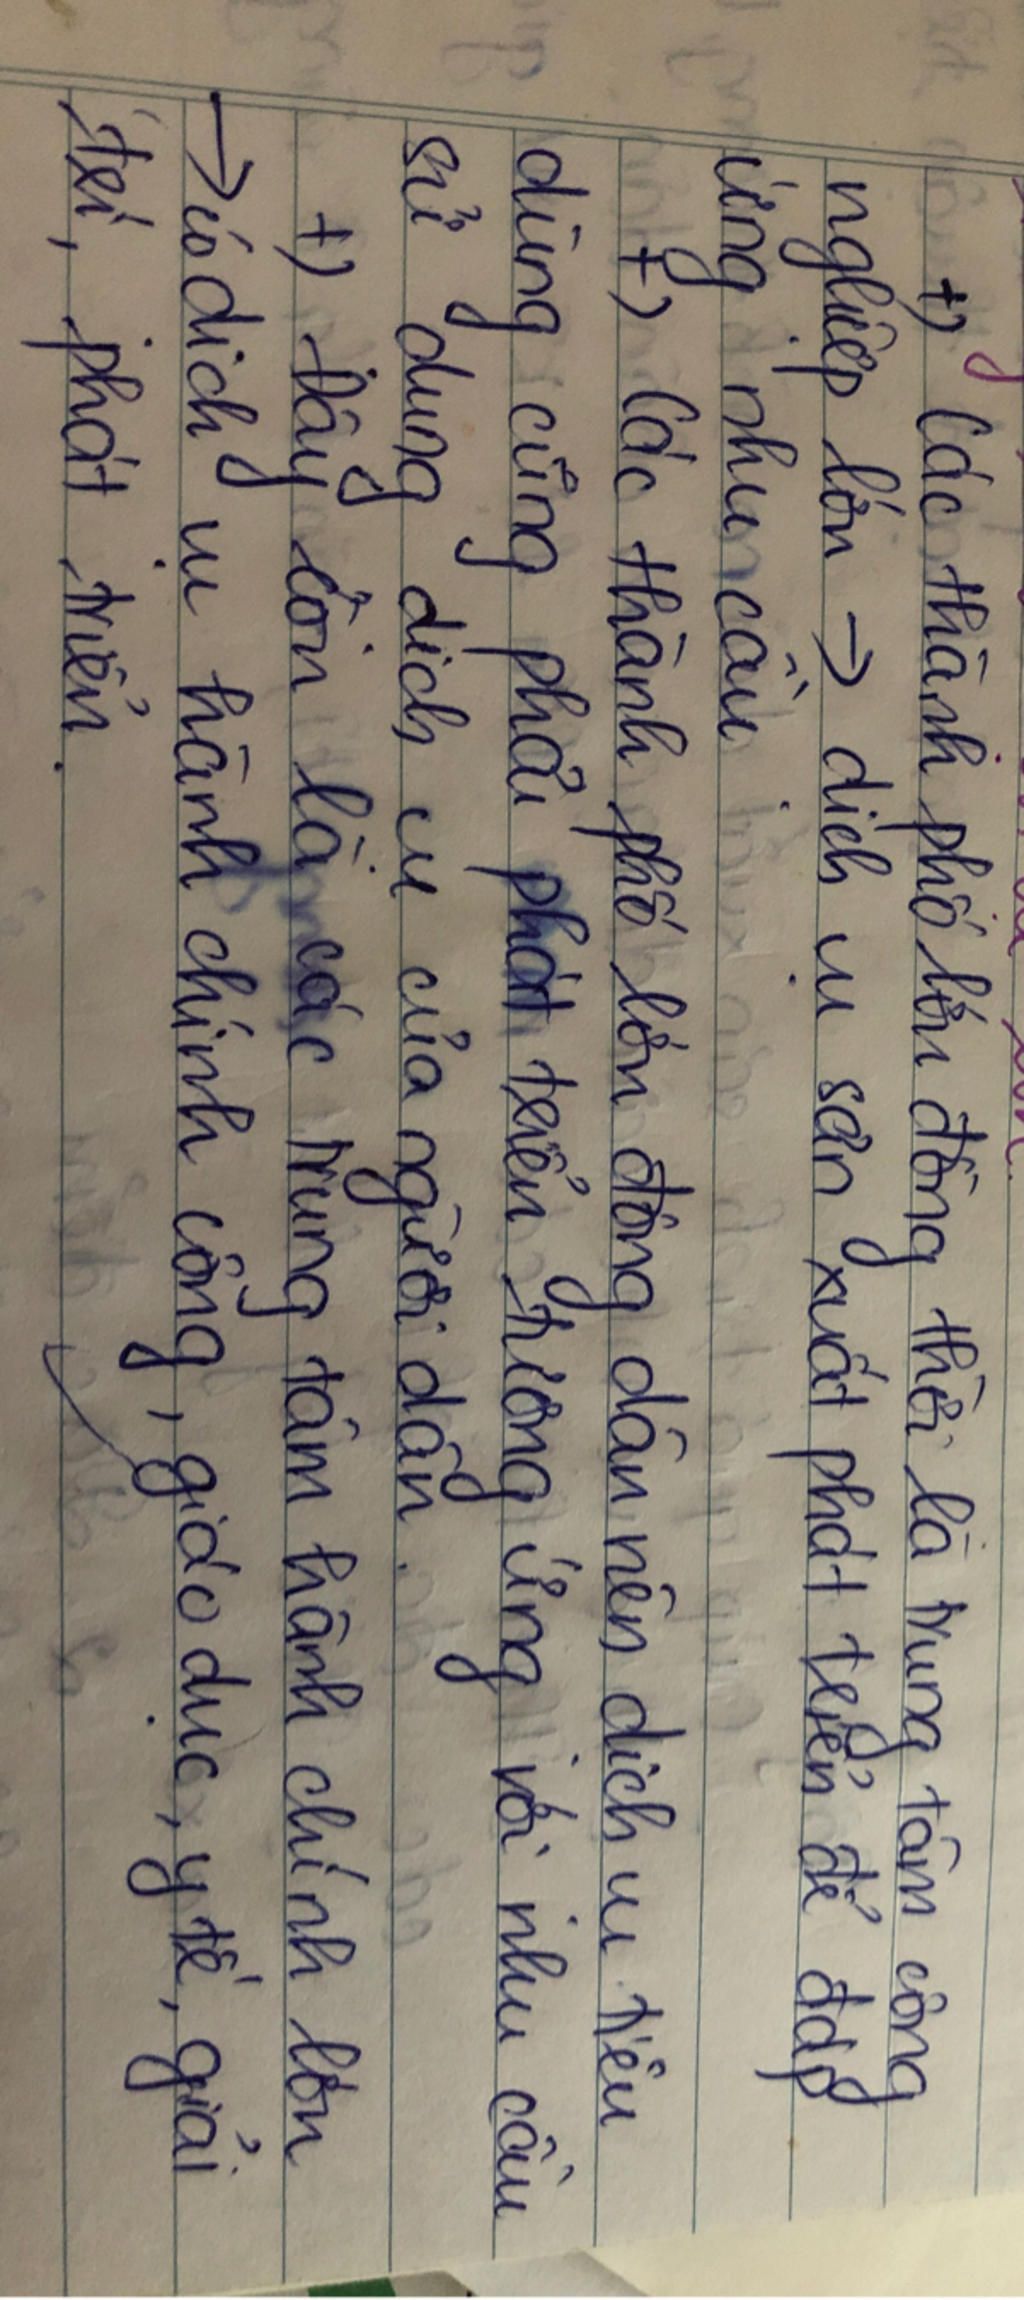 +) Các thành phố lớn đồng thời là trung tâm công
nghiệp lớn → dịch vụ sản xuất phát teiển để đáp
ứng nhu cầu
+) Các thành phố lớn đông dân nên dịch vụ tiêu
dùng cũng phải phát teiển tương ứng với nhu cầu
sử dụng dịch vụ của người dân.
+) Đây còn là các trung tâm hành chính lớn
→ có dịch vụ hành chính công, giáo dục, y tế, giải
trí, phát triển.